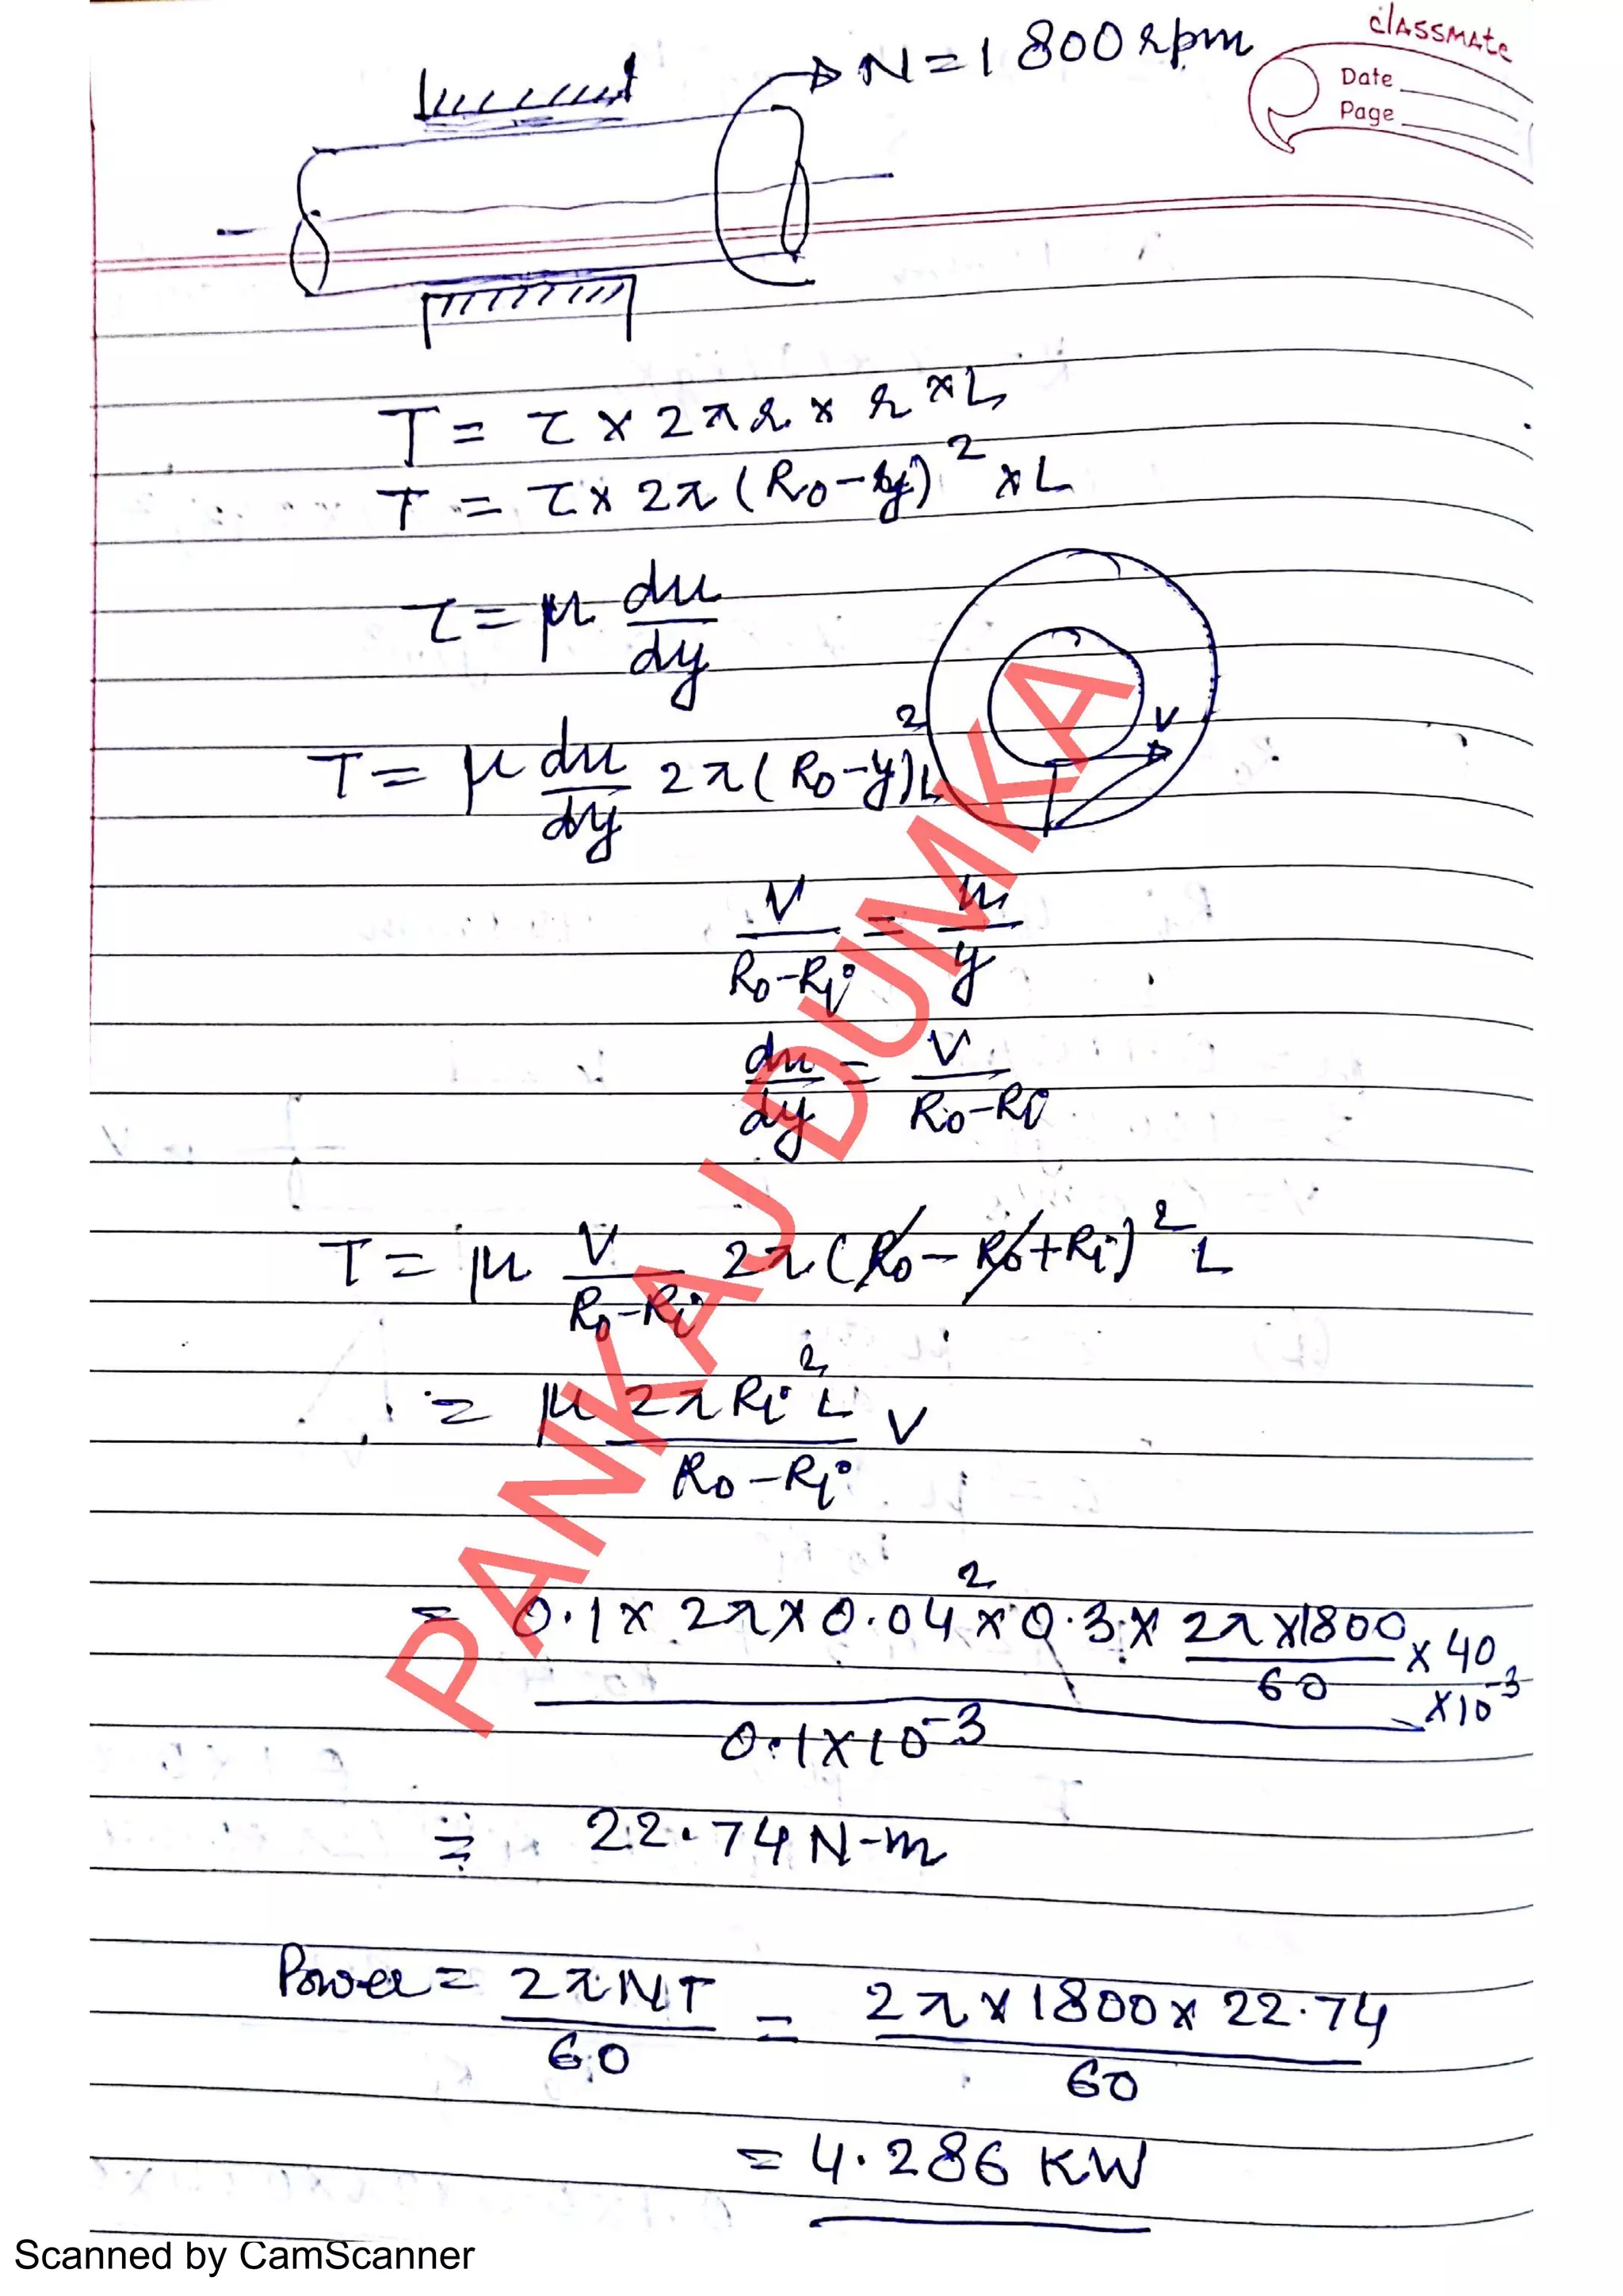 classmate
Date
Page
N = 1800 rpm
T = τ × 2πr × r × L
T = τ × 2π (R₀ - y)² × L
τ = μ du/dy
T = μ du/dy 2π (R₀ - y)² L
V
V/(R₀ - Rᵢ) = u/y
du/dy = V/(R₀ - Rᵢ)
T = μ V/(R₀ - Rᵢ) 2π (R₀ - R₀ + Rᵢ)² L
= μ 2π Rᵢ² L/(R₀ - Rᵢ) V
= 0.1 × 2π × 0.04² × 0.3 × 2π × 1800/60 × 40 × 10⁻³
0.1 × 10⁻³
= 22.74 N-m
Power = 2πNT/60 = 2π × 1800 × 22.74/60
= 4.286 KW
PANKAJ DUMKA
Scanned by CamScanner